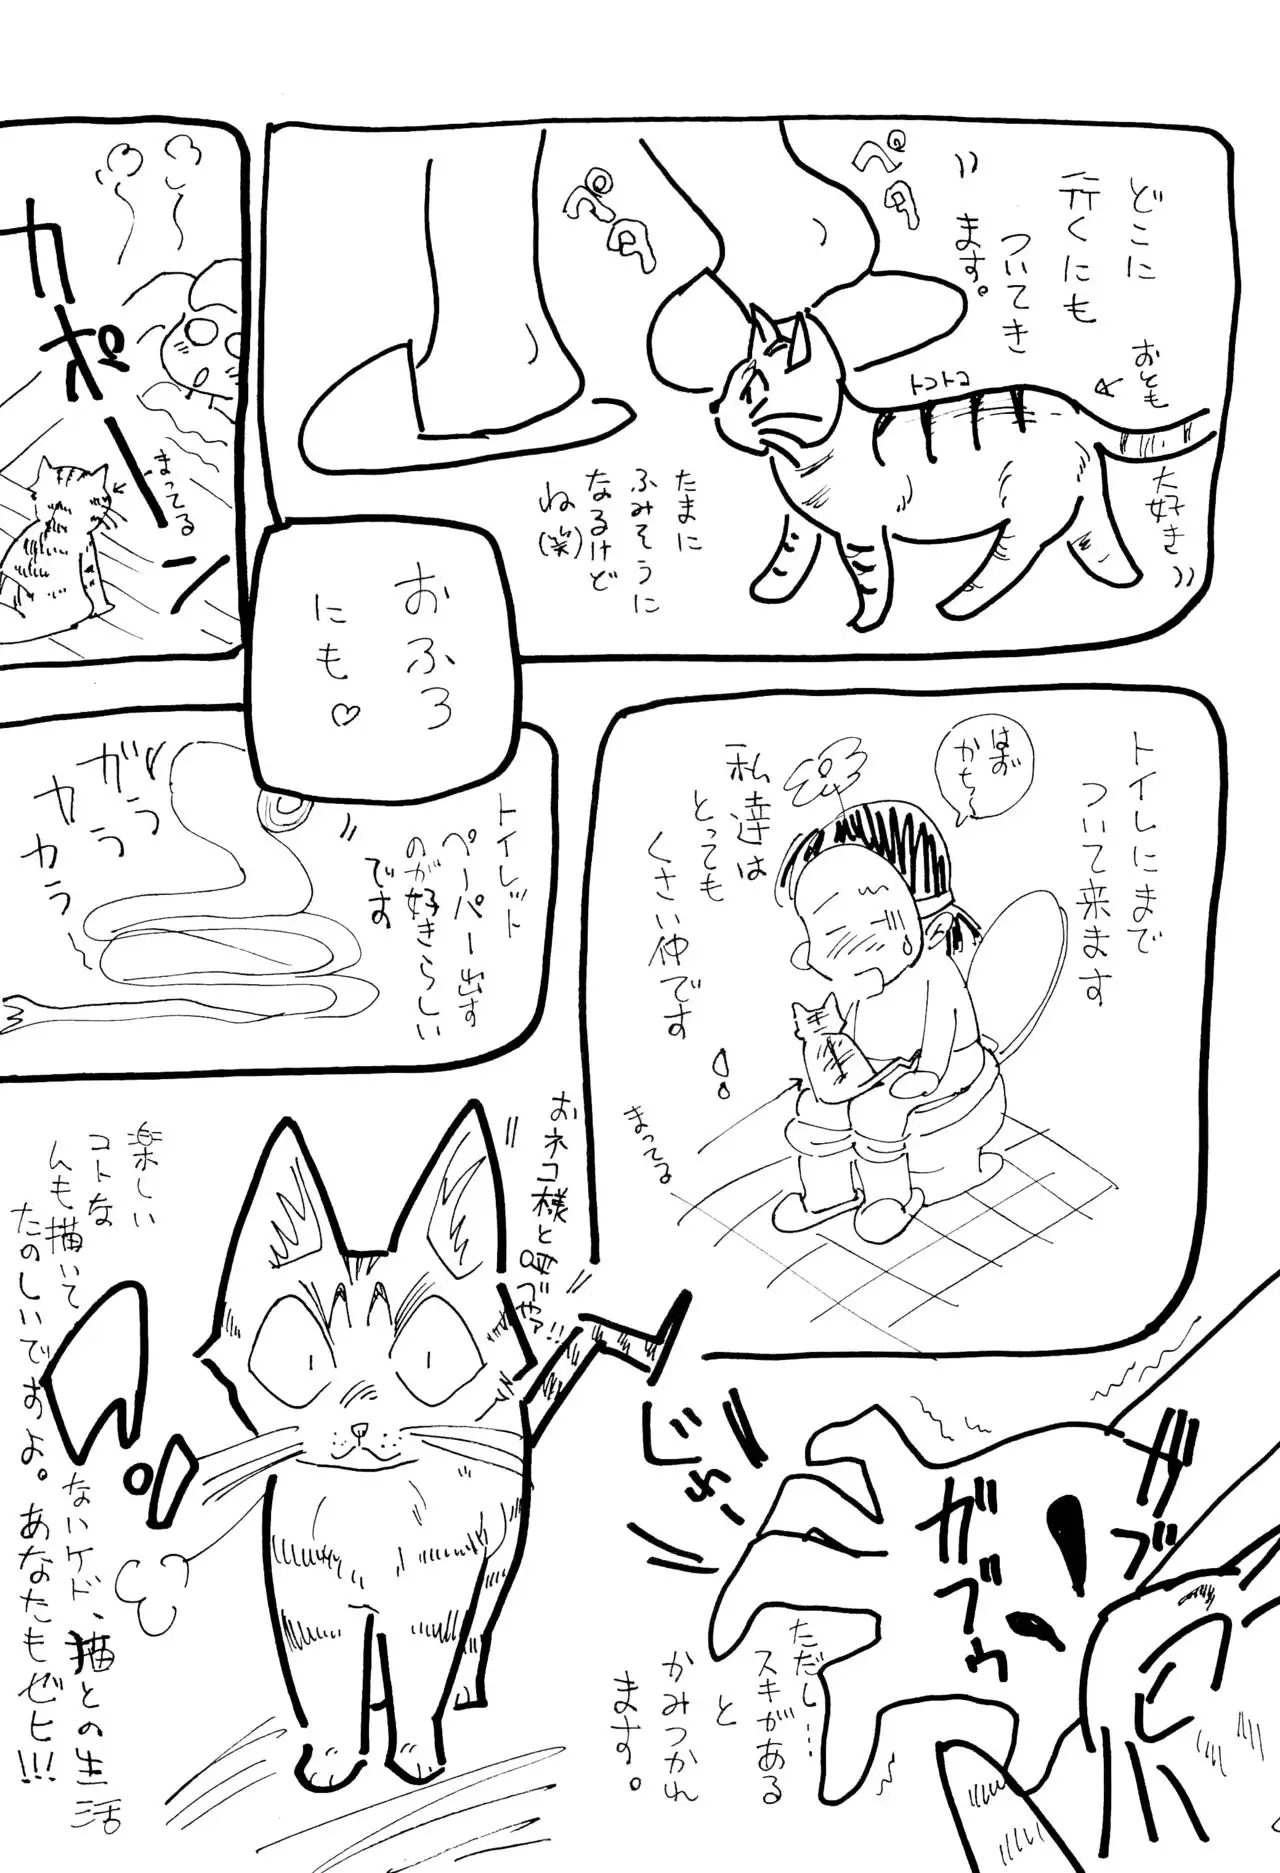 どこに
行くにも
ついてき
ます。
ペタ
ペタ
おとも
大好き
トコトコ
たまに
ふみそうに
なるけど
ね(笑)
おふろ
にも♡
カポーン
まってる
トイレにまで
ついて来ます
はお
かちゃ〜
私達は
とっても
くさい仲です
まってる
トイレット
ペーパー出す
のが好きらしい
です
ガラ
ガラ
カラ
カラ
ただし…
スキがある
と
かみつかれ
ます。
ガブ
ガブゥ
おネコ様と呼べやァ!!
楽しい
コトな
んも描いて
ないケド、猫との生活
たのしいですよ。あなたもぜヒ!!!